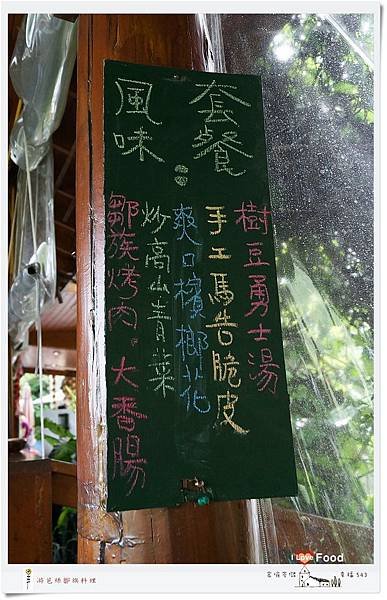 風味套餐：
樹豆勇士湯
手工馬告脆皮
爽口檳榔花
炒高山青菜
鄒族烤肉。大香腸
I Love Food
游芭絲鄒族料理
幸福 543